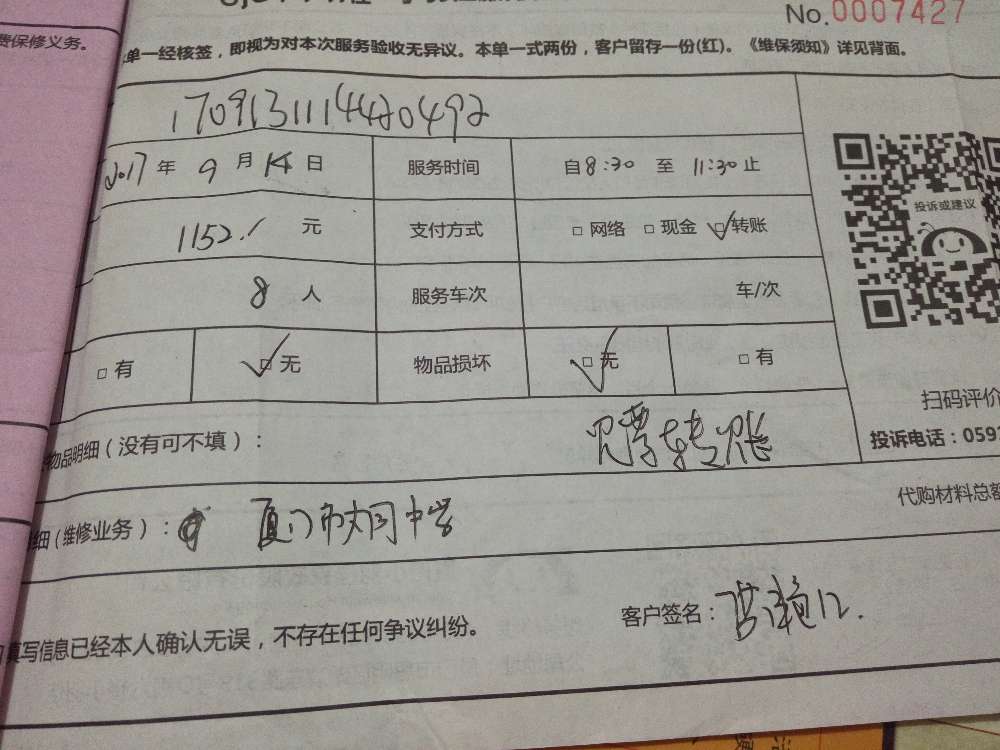 No.0007427
费保修义务。
单一经核签，即视为对本次服务验收无异议。本单一式两份，客户留存一份(红)。《维保须知》详见背面。
1709131114420492
2017年 9月 14日 服务时间 自8:30 至 11:30止
1152.1 元 支付方式 □网络 □现金 □转账
投诉或建议
8 人 服务车次 车/次
□有 □无 物品损坏 □无 □有
扫码评价
物品明细（没有可不填）： 见票转账
投诉电话：0592
代购材料总额
细（维修业务）： 厦门市大同中学
客户签名：
填写信息已经本人确认无误，不存在任何争议纠纷。